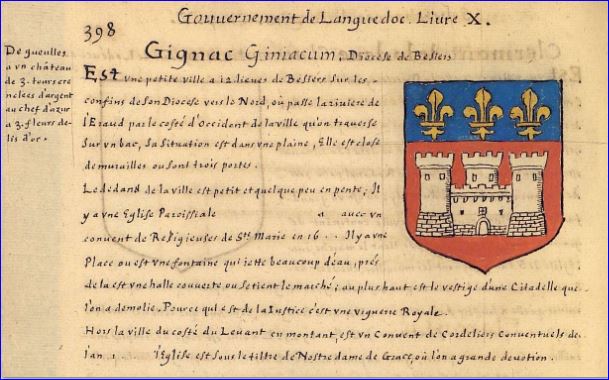 Gouvernement de Languedoc. Liure X.
398
Gignac Giniacum, Diocese de Besiers
De gueulles
a vn château
de 3. tours cre
nelees d'argent
au chef d'azur
a 3. fleurs de
lis d'or.
Est vne petite ville a 12 lieues de Besiers sur les
confins de son Diocese vers le Nord, ou passe la riuiere de
l'Eraud par le costé d'Occident de la ville qu'on trauerse
sur vn bac, sa situation est dans vne plaine, Elle est close
de murailles ou sont trois portes.
Le dedans de la ville est petit et quelque peu en pente; Il
y a vne Eglise Paroissiale a auec vn
conuent de Religieuses de Ste Marie en 16 . . Il y a vne
Place ou est vne fontaine qui iette beaucoup d'eau, prés
de la est vne halle couuerte ou se tient le marché; au plus haut est le vestige d'une Citadelle que
l'on a demolie. Pource qui est de la Iustice c'est vne viguerie Royale.
Hors la ville du costé du Leuant en montant, est vn Conuent de Cordeliers Conuentuels de
l'an l'Eglise est sous le tiltre de Nostre dame de Grace, où l'on a grande deuotion.